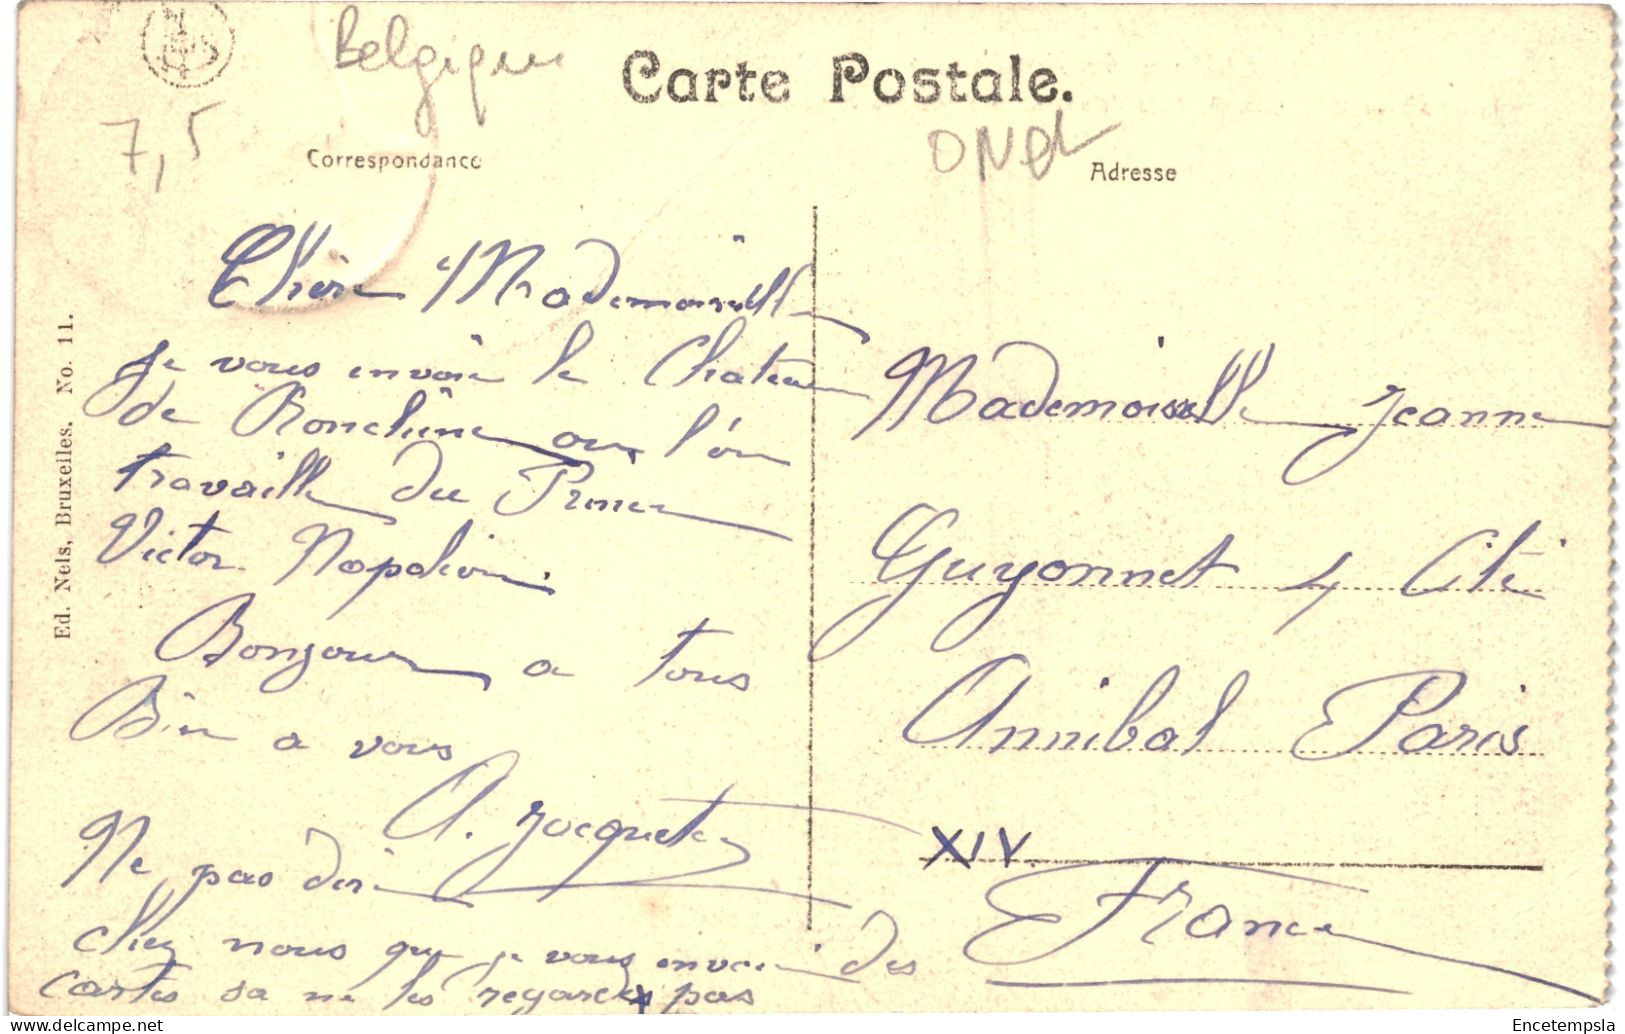 Belgique
Carte Postale.
7,5
Correspondance
Adresse
Ed. Nels, Bruxelles. No. 11.
Chère Mademoiselle
je vous envoie le Chateau
de Ronchine ou l'on
travaille du Prince
Victor Napoléon.
Bonjour a tous
Bien a vous
A. Jacquet
Ne pas dire
chez nous que je vous envoie des
cartes sa ne les regardes pas
Mademoiselle Jeanne
Guyonnet 4 Cité
Annibal Paris
XIV.
France
Encetempsla